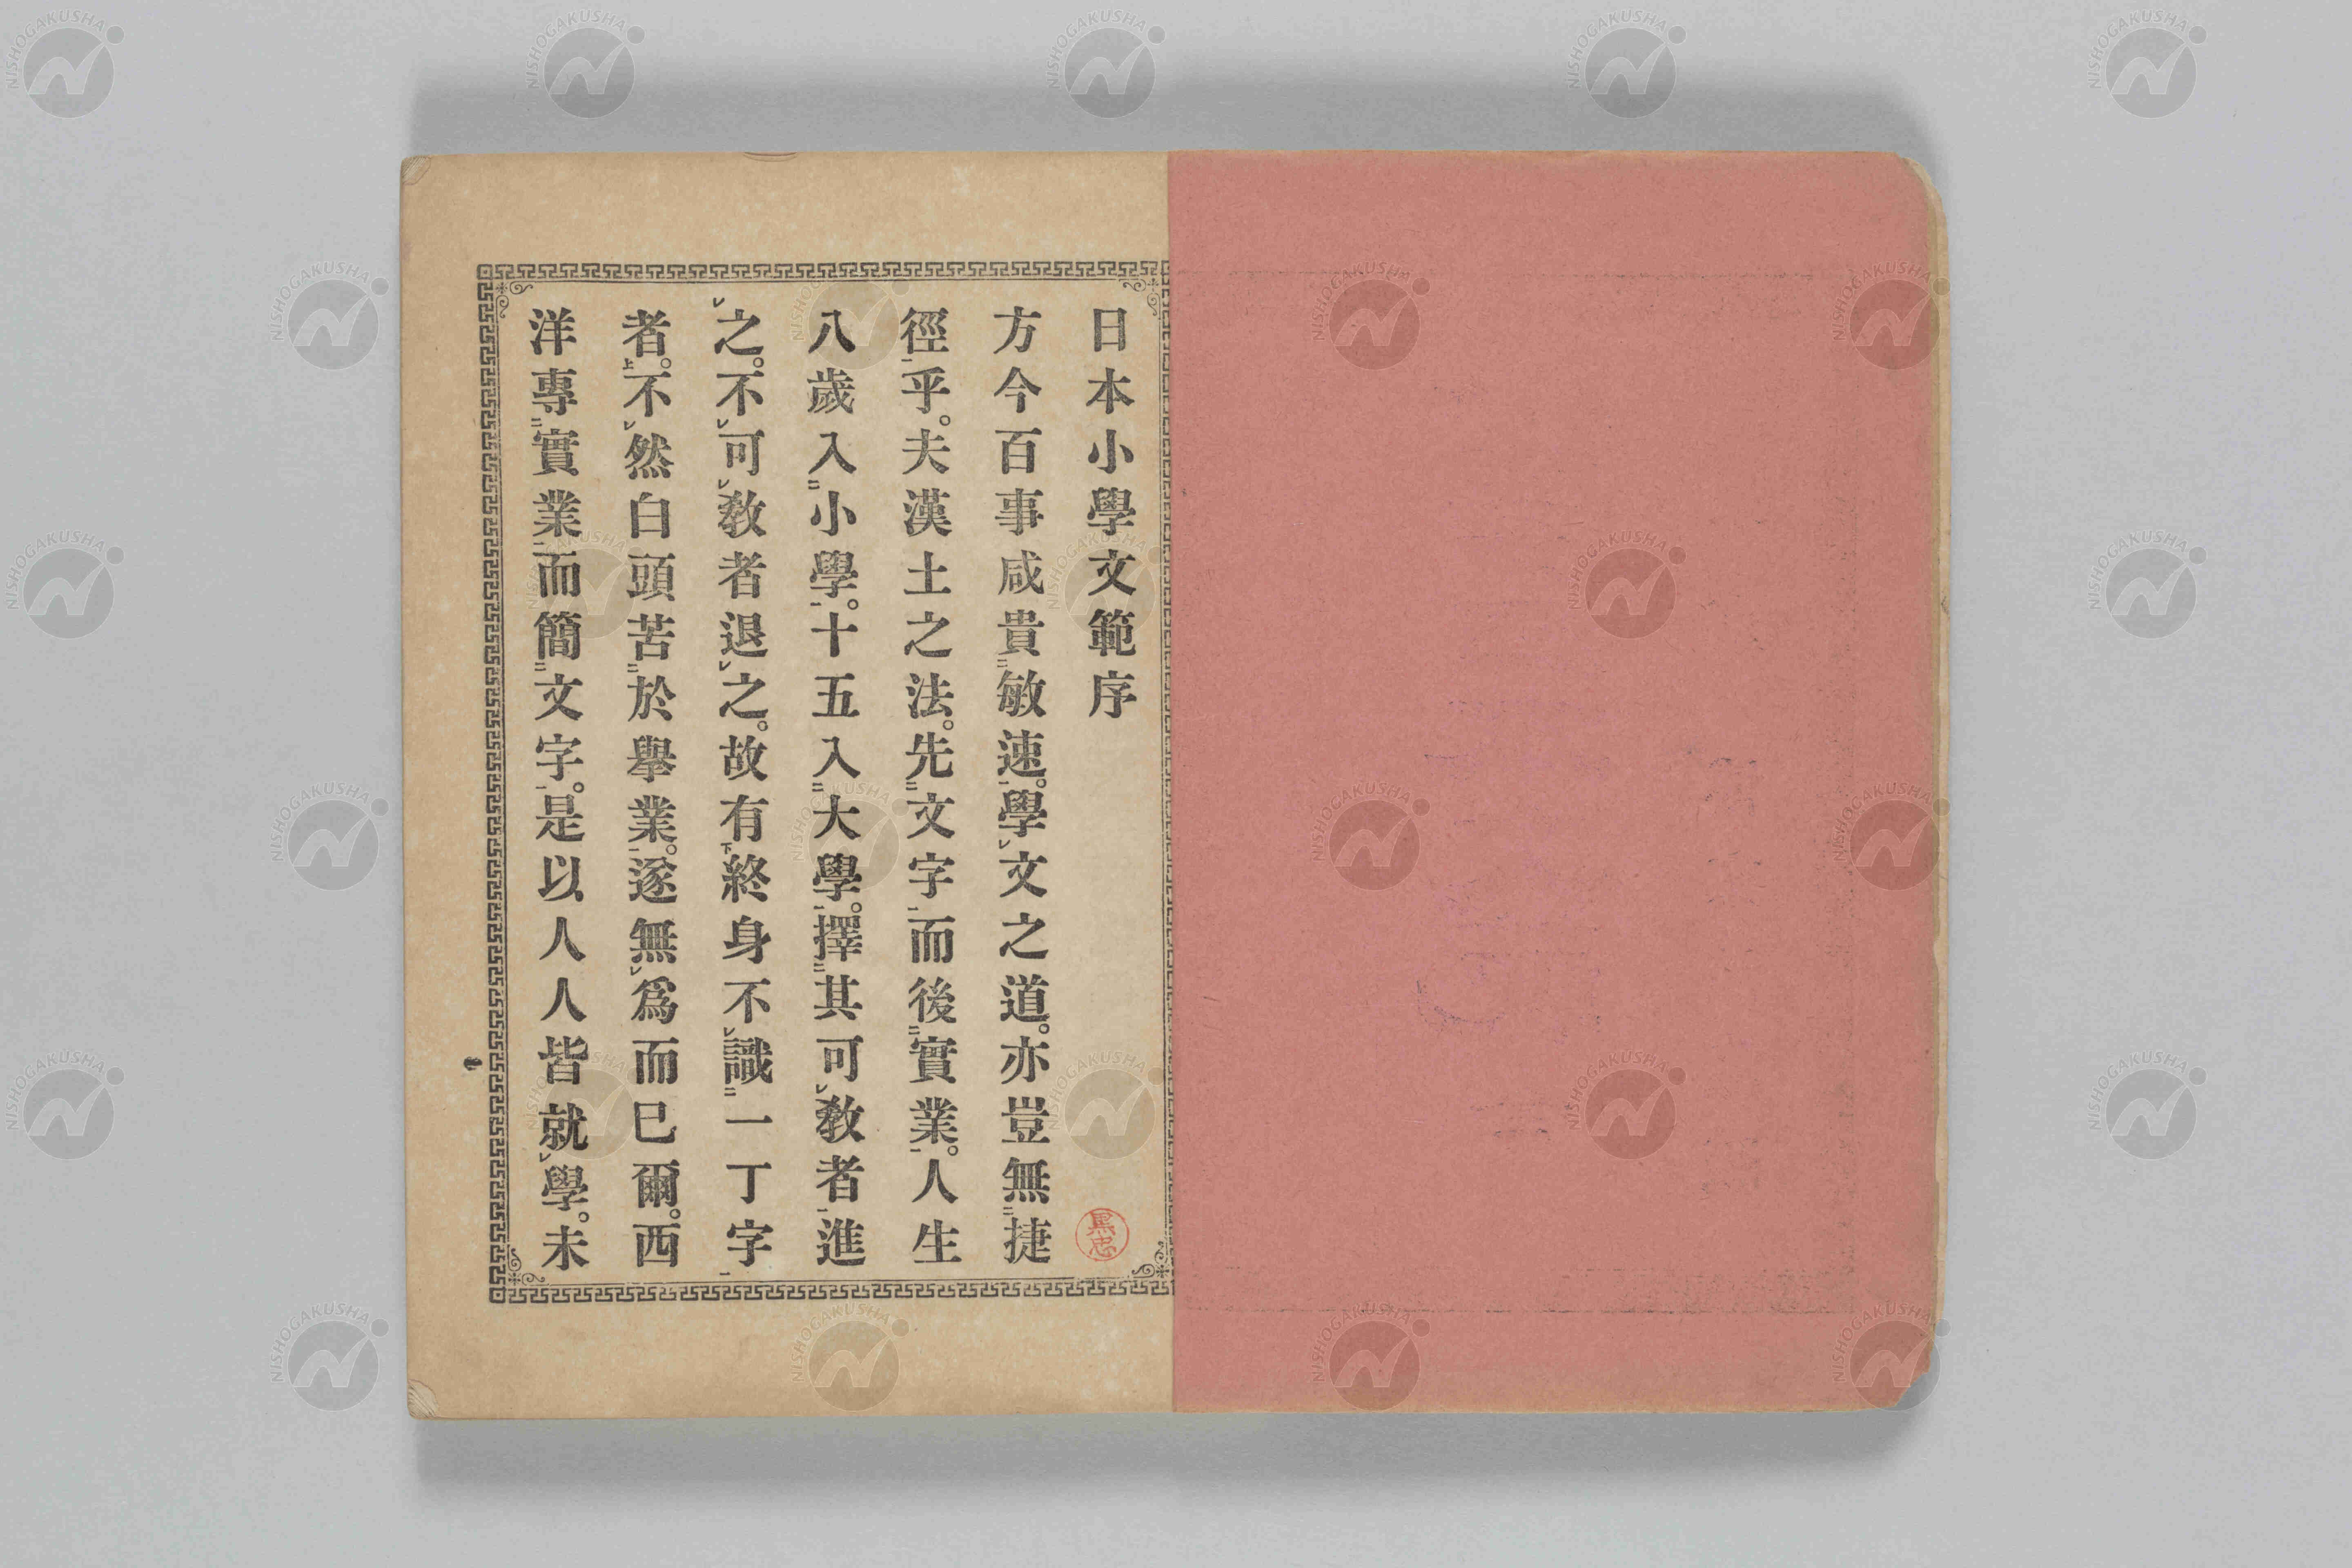 日本小學文範序
方今百事咸貴㆓敏速㆒。學㆑文之道。亦豈無㆓捷
徑㆒乎。夫漢土之法。先㆓文字㆒而後㆓實業㆒。人生
八歲入㆓小學㆒。十五入㆓大學㆒。擇㆓其可㆑敎者㆒進
㆑之。不㆑可㆑敎者退㆑之。故有㆘終身不㆑識㆓一丁字㆒
者㆖。不㆑然白頭苦㆓於擧業㆒。遂無㆑爲而已爾。西
洋專㆓實業㆒而簡㆓文字㆒。是以人人皆就㆑學。未
一
NISHOGAKUSHA